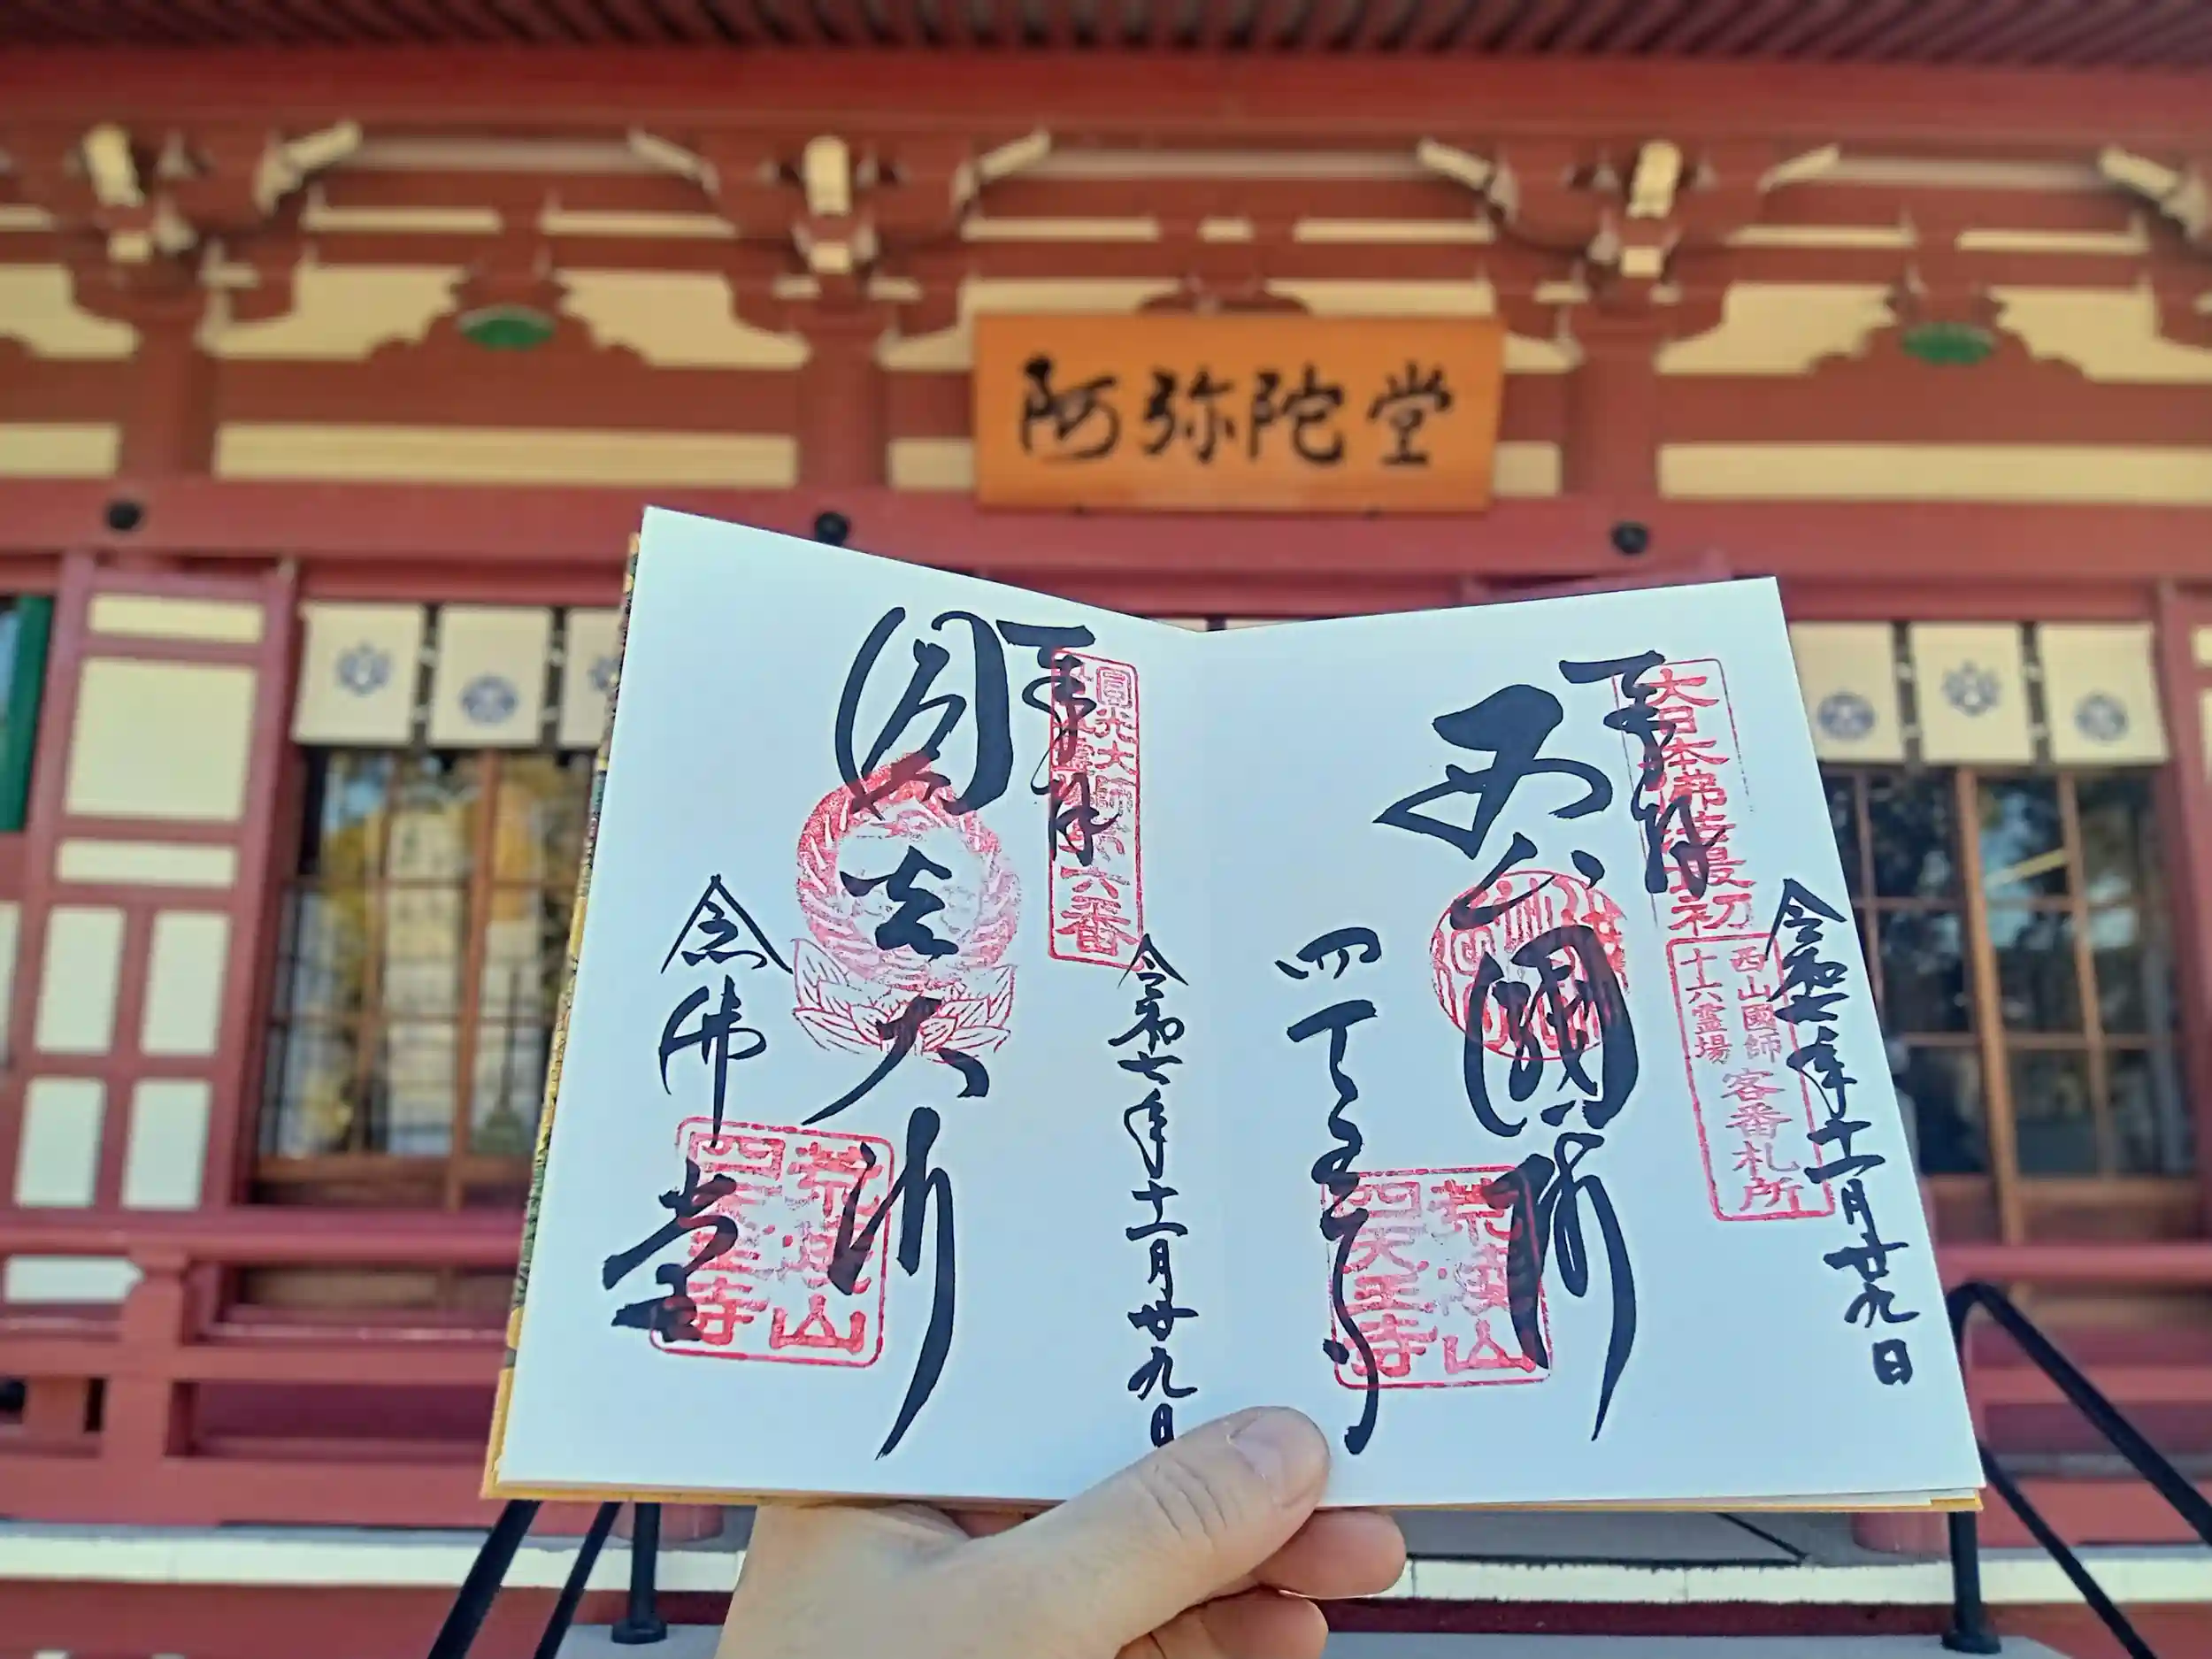 阿弥陀堂
奉拝
大日本佛法最初
西山國師
十六霊場
客番札所
令和七年十一月廿九日
西山國師
四天王寺
荒陵山
四天王寺
奉拝
圓光大師
第六番
令和七年十一月廿九日
円光大師
念佛堂
荒陵山
四天王寺